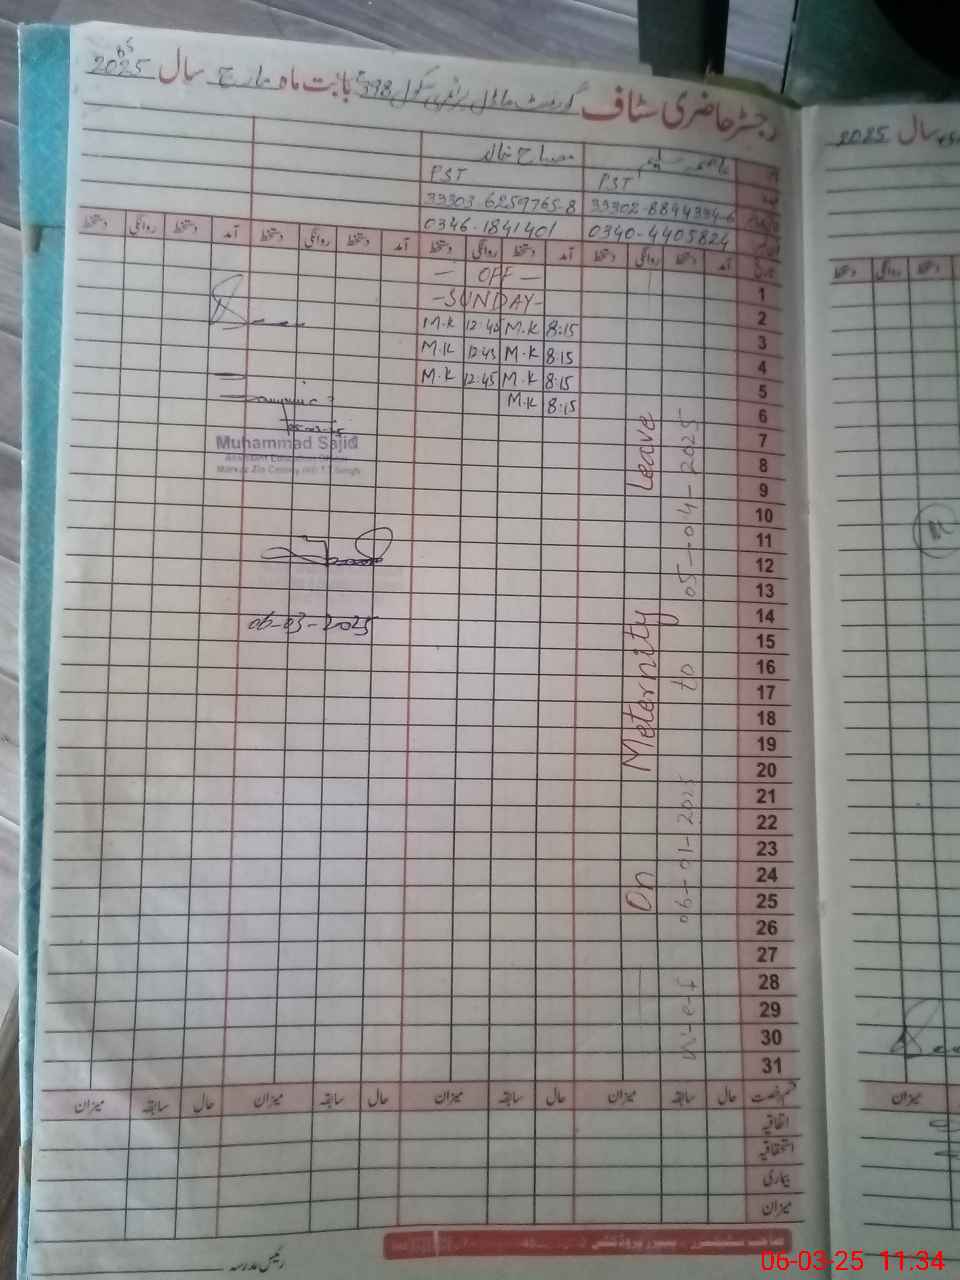 رجسٹر حاضری سٹاف گورنمنٹ ماڈل پرائمری سکول 398 بابت ماہ مارچ سال 2025
عاصمہ سلیم مصباح خالد
PST PST
33302-8844334-6 33303-6259765-8
0340-4405824 0346-1841401
تاریخ آمد دستخط روانگی دستخط آمد دستخط روانگی دستخط آمد دستخط روانگی دستخط آمد دستخط روانگی دستخط
1 — OFF —
2 -SUNDAY-
3 8:15 M.K 12:42 M.K
4 8:15 M.K 12:43 M.K
5 8:15 M.K 12:45 M.K
6 8:15 M.K
7
8
9
10
11
12
13
14
15
16
17
18
19
20
21
22
23
24
25
26
27
28
29
30
31
On Meternity Leave
w-e-f 06-01-2025 to 05-04-2025
Muhammad Sajid
06-03-2025
قسم رخصت حال سابقہ میزان حال سابقہ میزان حال سابقہ میزان حال سابقہ میزان
اتفاقیہ
استحقاقیہ
بیماری
میزان
رئیس مدرسہ
سال 2025
میزان
06-03-25 11.34